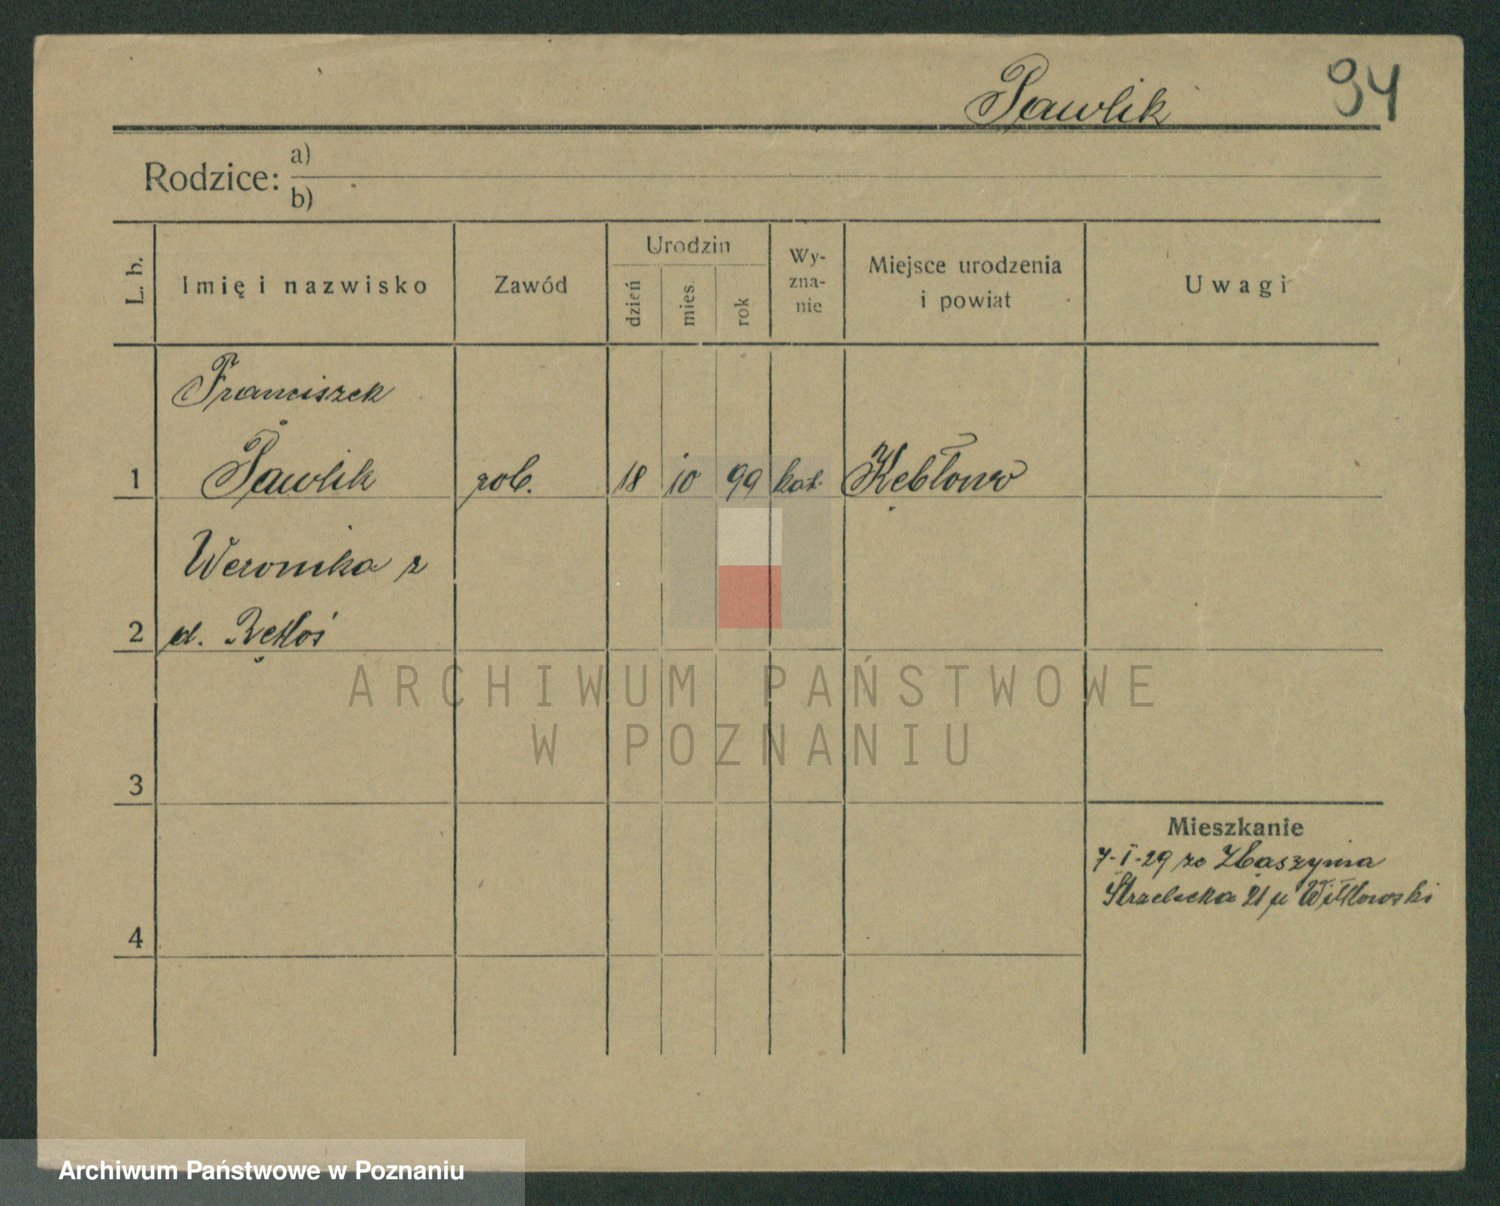 Pawlik 94
Rodzice: a)
b)
L. b.
Imię i nazwisko
Zawód
Urodzin
dzień
mies.
rok
Wy-
zna-
nie
Miejsce urodzenia
i powiat
Uwagi
Franciszek
1 Pawlik rob. 18 10 99 kat. Kębłowo
Weronika z
2 d.
3
4
Mieszkanie
7-I-29 ze Zbąszynia
Strzelecka 21 u Witkowski
ARCHIWUM PAŃSTWOWE
W POZNANIU
Archiwum Państwowe w Poznaniu